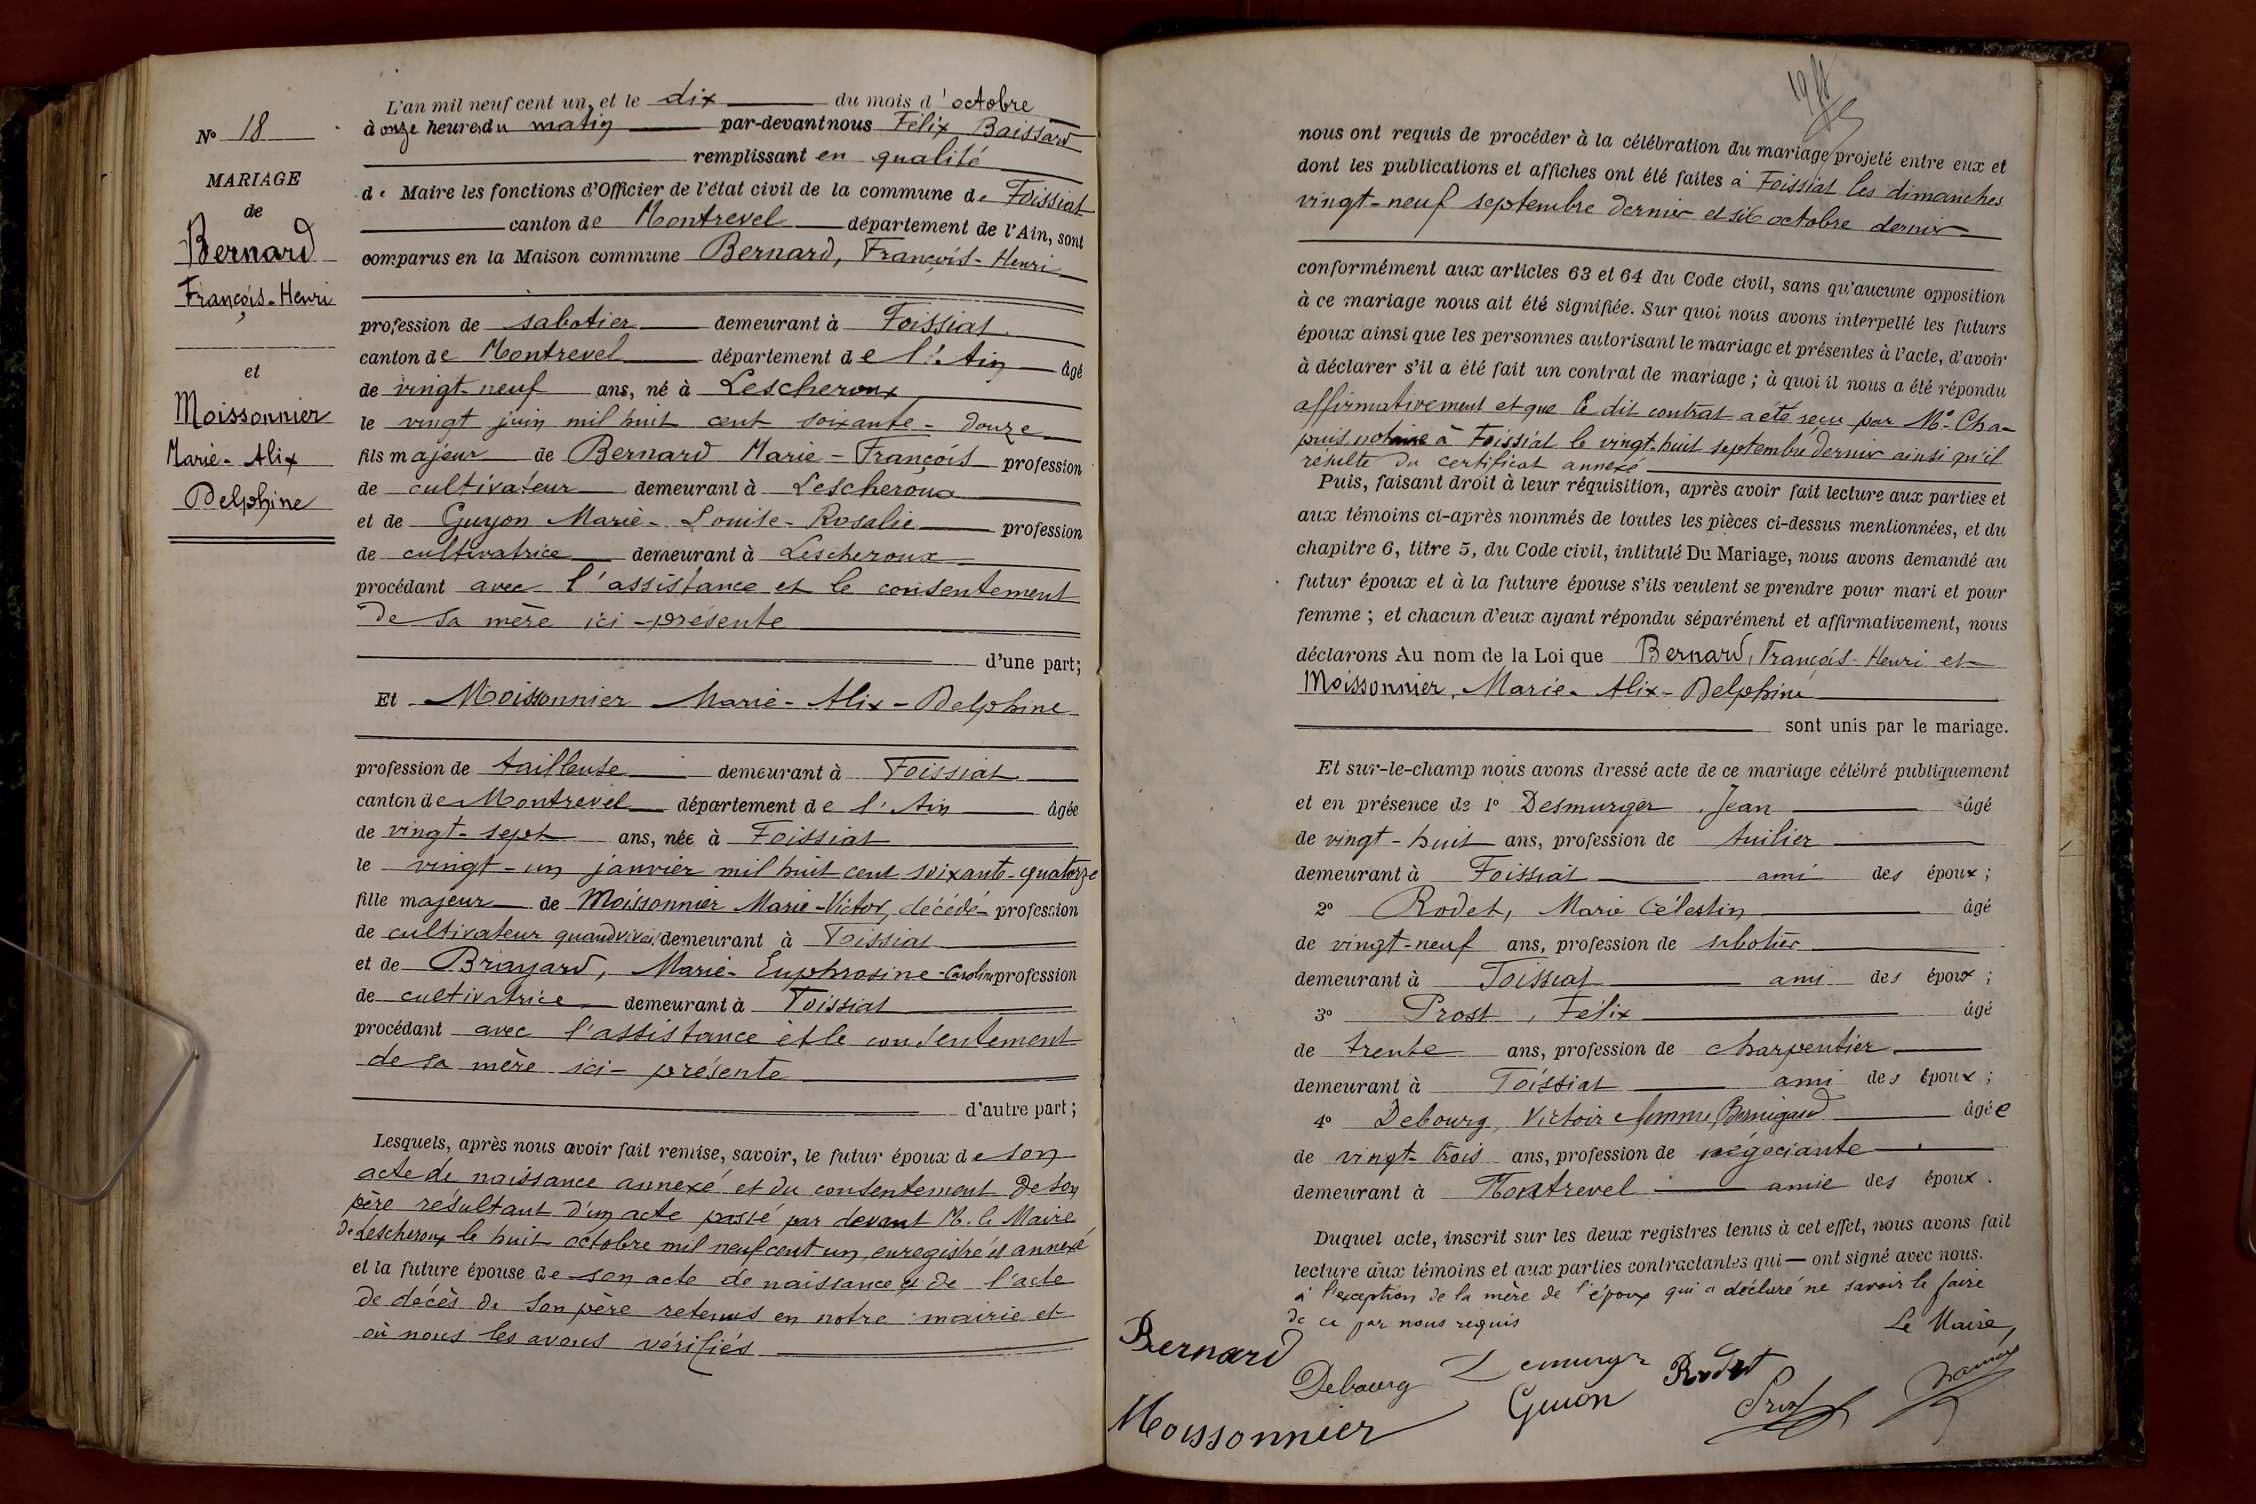 N° 18
MARIAGE
de
Bernard
François-Henri
et
Moissonnier
Marie-Alix
Delphine
L'an mil neuf cent un, et le dix du mois d'octobre
à onze heures du matin par-devant nous Félix Baissard
remplissant en qualité
de Maire les fonctions d'Officier de l'état civil de la commune de Foissiat
canton de Montrevel département de l'Ain, sont
comparus en la Maison commune Bernard, François-Henri
profession de sabotier demeurant à Foissiat
canton de Montrevel département de l'Ain âgé
de vingt-neuf ans, né à Lescheroux
le vingt juin mil huit cent soixante-douze
fils majeur de Bernard Marie-François profession
de cultivateur demeurant à Lescheroux
et de Guyon Marie-Louise-Rosalie profession
de cultivatrice demeurant à Lescheroux
procédant avec l'assistance et le consentement
de sa mère ici-présente
d'une part;
Et Moissonnier Marie-Alix-Delphine
profession de tailleuse demeurant à Foissiat
canton de Montrevel département de l'Ain âgée
de vingt-sept ans, née à Foissiat
le vingt-un janvier mil huit cent soixante-quatorze
fille majeur de Moissonnier Marie-Victor, décédé profession
de cultivateur quand vivait demeurant à Foissiat
et de Brayard, Marie-Euphrosine-Caroline profession
de cultivatrice demeurant à Foissiat
procédant avec l'assistance et le consentement
de sa mère ici-présente
d'autre part;
Lesquels, après nous avoir fait remise, savoir, le futur époux de son
acte de naissance annexé et du consentement de son
père résultant d'un acte passé par devant M. le Maire
de Lescheroux le huit octobre mil neuf cent un, enregistré et annexé
et la future épouse de son acte de naissance et de l'acte
de décès de son père retenus en notre mairie et
où nous les avons vérifiés
nous ont requis de procéder à la célébration du mariage projeté entre eux et
dont les publications et affiches ont été faites à Foissiat les dimanches
vingt-neuf septembre dernier et six octobre dernier
conformément aux articles 63 et 64 du Code civil, sans qu'aucune opposition
à ce mariage nous ait été signifiée. Sur quoi nous avons interpellé les futurs
époux ainsi que les personnes autorisant le mariage et présentes à l'acte, d'avoir
à déclarer s'il a été fait un contrat de mariage; à quoi il nous a été répondu
affirmativement et que le dit contrat a été reçu par Me Cha-
puis notaire à Foissiat le vingt-huit septembre dernier ainsi qu'il
résulte du certificat annexé
Puis, faisant droit à leur réquisition, après avoir fait lecture aux parties et
aux témoins ci-après nommés de toutes les pièces ci-dessus mentionnées, et du
chapitre 6, titre 5, du Code civil, intitulé Du Mariage, nous avons demandé au
futur époux et à la future épouse s'ils veulent se prendre pour mari et pour
femme; et chacun d'eux ayant répondu séparément et affirmativement, nous
déclarons Au nom de la Loi que Bernard, François-Henri et
Moissonnier, Marie-Alix-Delphine
sont unis par le mariage.
Et sur-le-champ nous avons dressé acte de ce mariage célébré publiquement
et en présence de 1° Desmurger Jean âgé
de vingt-huit ans, profession de tuilier
demeurant à Foissiat ami des époux;
2° Rodet, Marie Célestin âgé
de vingt-neuf ans, profession de sabotier
demeurant à Foissiat ami des époux;
3° Prost, Félix âgé
de trente ans, profession de charpentier
demeurant à Foissiat ami des époux;
4° Debourg, Victoire femme Bernigaud âgée
de vingt-trois ans, profession de négociante
demeurant à Montrevel amie des époux.
Duquel acte, inscrit sur les deux registres tenus à cet effet, nous avons fait
lecture aux témoins et aux parties contractantes qui — ont signé avec nous.
à l'exception de la mère de l'époux qui a déclaré ne savoir le faire
de ce par nous requis
Le Maire,
Bernard
Debourg
Demurger
Rodet
Moissonnier
Guion
Prost